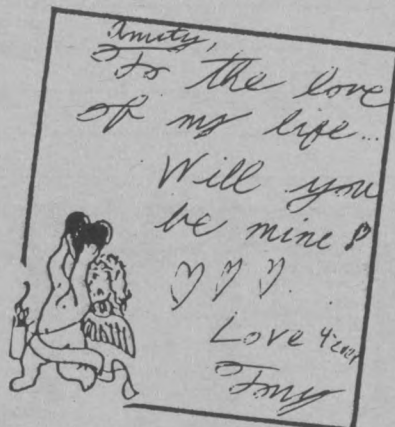 Amity,
To the love
of my life...
Will you
be mine?
Love 4-ever